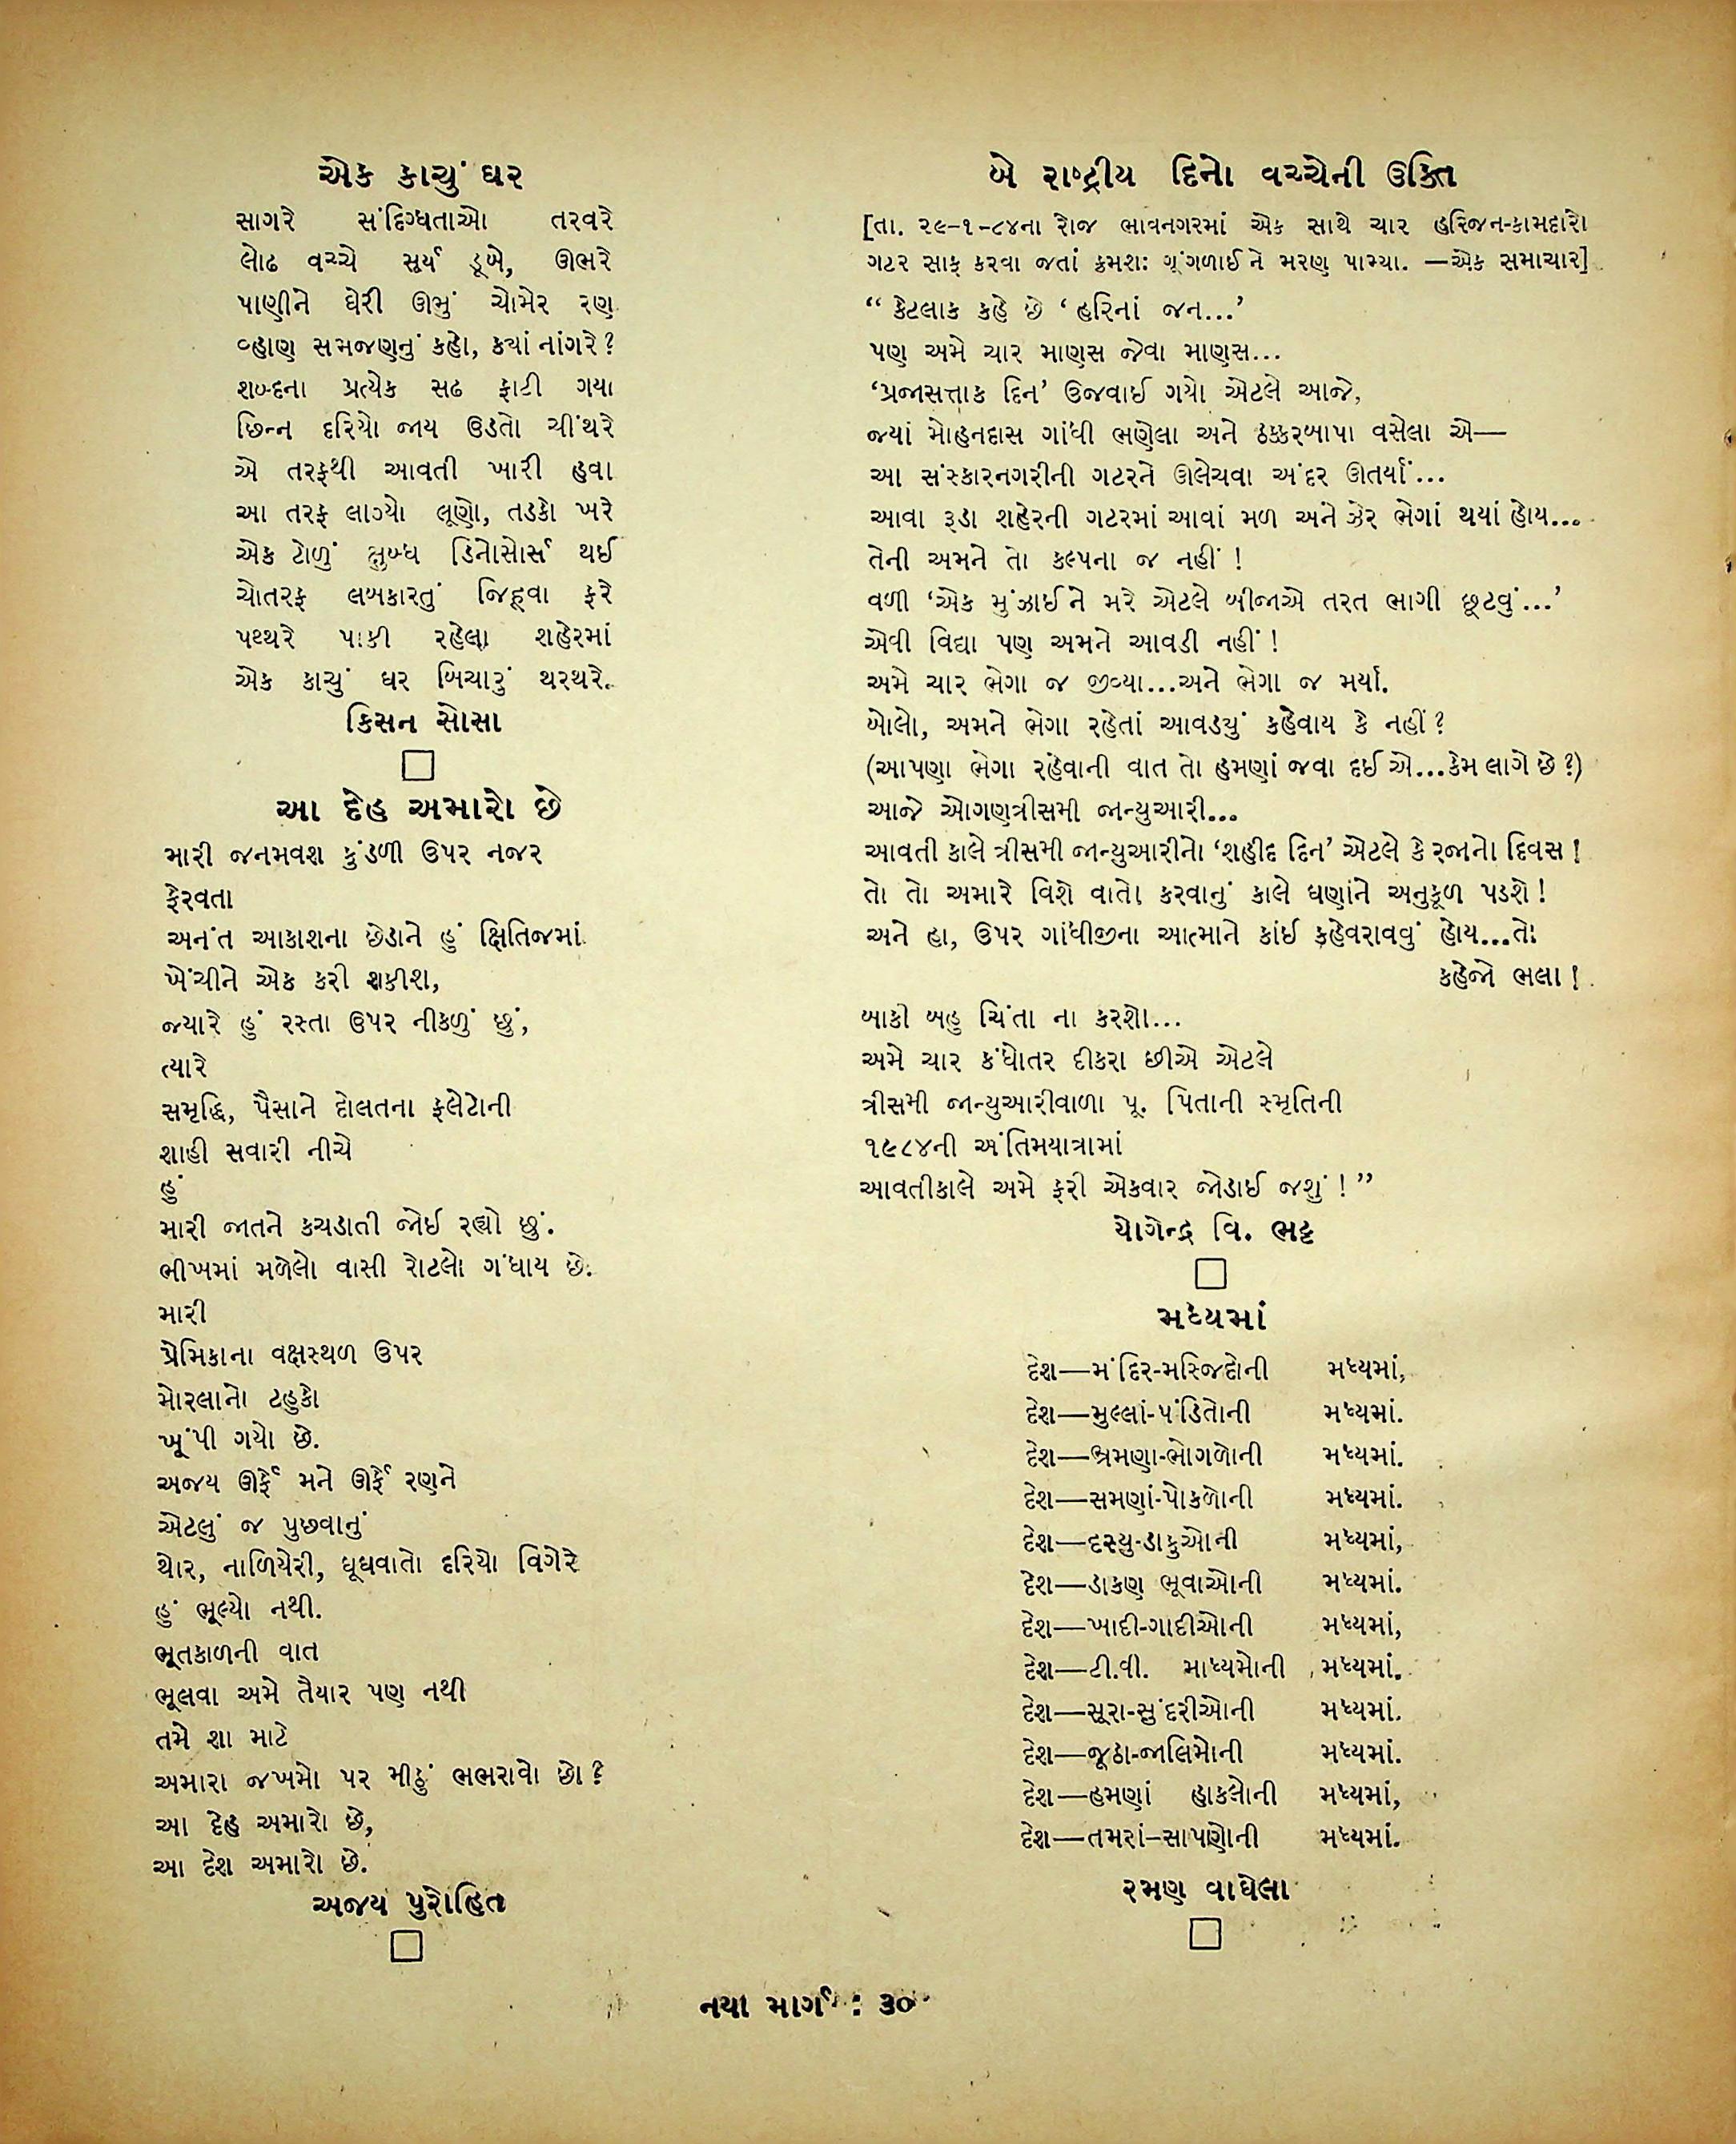 એક કાચું ઘર
સાગરે સંદિગ્ધતાઓ તરવરે
લોઢ વચ્ચે સૂર્ય ડૂબે, ઊભરે
પાણીને ઘેરી ઊભું ચોમેર રણ
વ્હાણ સમજણનું કહો, ક્યાં નાંગરે?
શબ્દના પ્રત્યેક સઢ ફાટી ગયા
છિન્ન દરિયો જાય ઉડતો ચીંથરે
એ તરફથી આવતી ખારી હવા
આ તરફ લાગ્યો લૂણો, તડકો ખરે
એક ટોળું ક્ષુબ્ધ ડિનોસોર્સ થઈ
ચોતરફ લબકારતું જિહ્વા ફરે
પથ્થરે પાકી રહેલા શહેરમાં
એક કાચું ઘર બિચારું થરથરે.
કિસન સોસા
આ દેહ અમારો છે
મારી જનમવશ કુંડળી ઉપર નજર
ફેરવતા
અનંત આકાશના છેડાને હું ક્ષિતિજમાં
ખેંચીને એક કરી શકીશ,
જ્યારે હું રસ્તા ઉપર નીકળું છું,
ત્યારે
સમૃદ્ધિ, પૈસાને દોલતના ફ્લેટોની
શાહી સવારી નીચે
હું
મારી જાતને કચડાતી જોઈ રહ્યો છું.
ભીખમાં મળેલો વાસી રોટલો ગંધાય છે.
મારી
પ્રેમિકાના વક્ષસ્થળ ઉપર
મોરલાનો ટહુકો
ખૂંપી ગયો છે.
અજય ઊર્ફે મને ઊર્ફે રણને
એટલું જ પુછવાનું
થોર, નાળિયેરી, ઘૂઘવાતો દરિયો વિગેરે
હું ભૂલ્યો નથી.
ભૂતકાળની વાત
ભૂલવા અમે તૈયાર પણ નથી
તમે શા માટે
અમારા જખમો પર મીઠું ભભરાવો છો?
આ દેહ અમારો છે,
આ દેશ અમારો છે.
અજય પુરોહિત
બે રાષ્ટ્રીય દિનો વચ્ચેની ઉક્તિ
[તા. ૨૯-૧-૮૪ના રોજ ભાવનગરમાં એક સાથે ચાર હરિજન-કામદારો
ગટર સાફ કરવા જતાં ક્રમશઃ ગૂંગળાઈને મરણ પામ્યા. —એક સમાચાર]
“ કેટલાક કહે છે ‘હરિનાં જન...’
પણ અમે ચાર માણસ જેવા માણસ...
‘પ્રજાસત્તાક દિન’ ઉજવાઈ ગયો એટલે આજે,
જ્યાં મોહનદાસ ગાંધી ભણેલા અને ઠક્કરબાપા વસેલા એ—
આ સંસ્કારનગરીની ગટરને ઊલેચવા અંદર ઊતર્યાં...
આવા રૂડા શહેરની ગટરમાં આવાં મળ અને ઝેર ભેગાં થયાં હોય...
તેની અમને તો કલ્પના જ નહીં !
વળી ‘એક મુંઝાઈને મરે એટલે બીજાએ તરત ભાગી છૂટવું...’
એવી વિદ્યા પણ અમને આવડી નહીં !
અમે ચાર ભેગા જ જીવ્યા...અને ભેગા જ મર્યા.
બોલો, અમને ભેગા રહેતાં આવડયું કહેવાય કે નહીં?
(આપણા ભેગા રહેવાની વાત તો હમણાં જવા દઈએ...કેમ લાગે છે?)
આજે ઓગણત્રીસમી જાન્યુઆરી...
આવતી કાલે ત્રીસમી જાન્યુઆરીનો ‘શહીદ દિન’ એટલે કે રજાનો દિવસ !
તો તો અમારે વિશે વાતો કરવાનું કાલે ઘણાંને અનુકૂળ પડશે !
અને હા, ઉપર ગાંધીજીના આત્માને કાંઈ કહેવરાવવું હોય...તો
કહેજો ભલા !
બાકી બહુ ચિંતા ના કરશો...
અમે ચાર કંધોતર દીકરા છીએ એટલે
ત્રીસમી જાન્યુઆરીવાળા પૂ. પિતાની સ્મૃતિની
૧૯૮૪ની અંતિમયાત્રામાં
આવતીકાલે અમે ફરી એકવાર જોડાઈ જશું ! ”
યોગેન્દ્ર વિ. ભટ્ટ
મધ્યમાં
દેશ—મંદિર-મસ્જિદોની મધ્યમાં,
દેશ—મુલ્લાં-પંડિતોની મધ્યમાં.
દેશ—ભ્રમણા-ભોગળોની મધ્યમાં.
દેશ—સમણાં-પોકળોની મધ્યમાં.
દેશ—દસ્યુ-ડાકુઓની મધ્યમાં,
દેશ—ડાકણ ભૂવાઓની મધ્યમાં.
દેશ—ખાદી-ગાદીઓની મધ્યમાં,
દેશ—ટી.વી. માધ્યમોની મધ્યમાં.
દેશ—સૂરા-સુંદરીઓની મધ્યમાં.
દેશ—જૂઠા-જાલિમોની મધ્યમાં.
દેશ—હમણાં હાકલોની મધ્યમાં,
દેશ—તમરાં–સાપણોની મધ્યમાં.
રમણ વાઘેલા
નયા માર્ગ : ૩૦